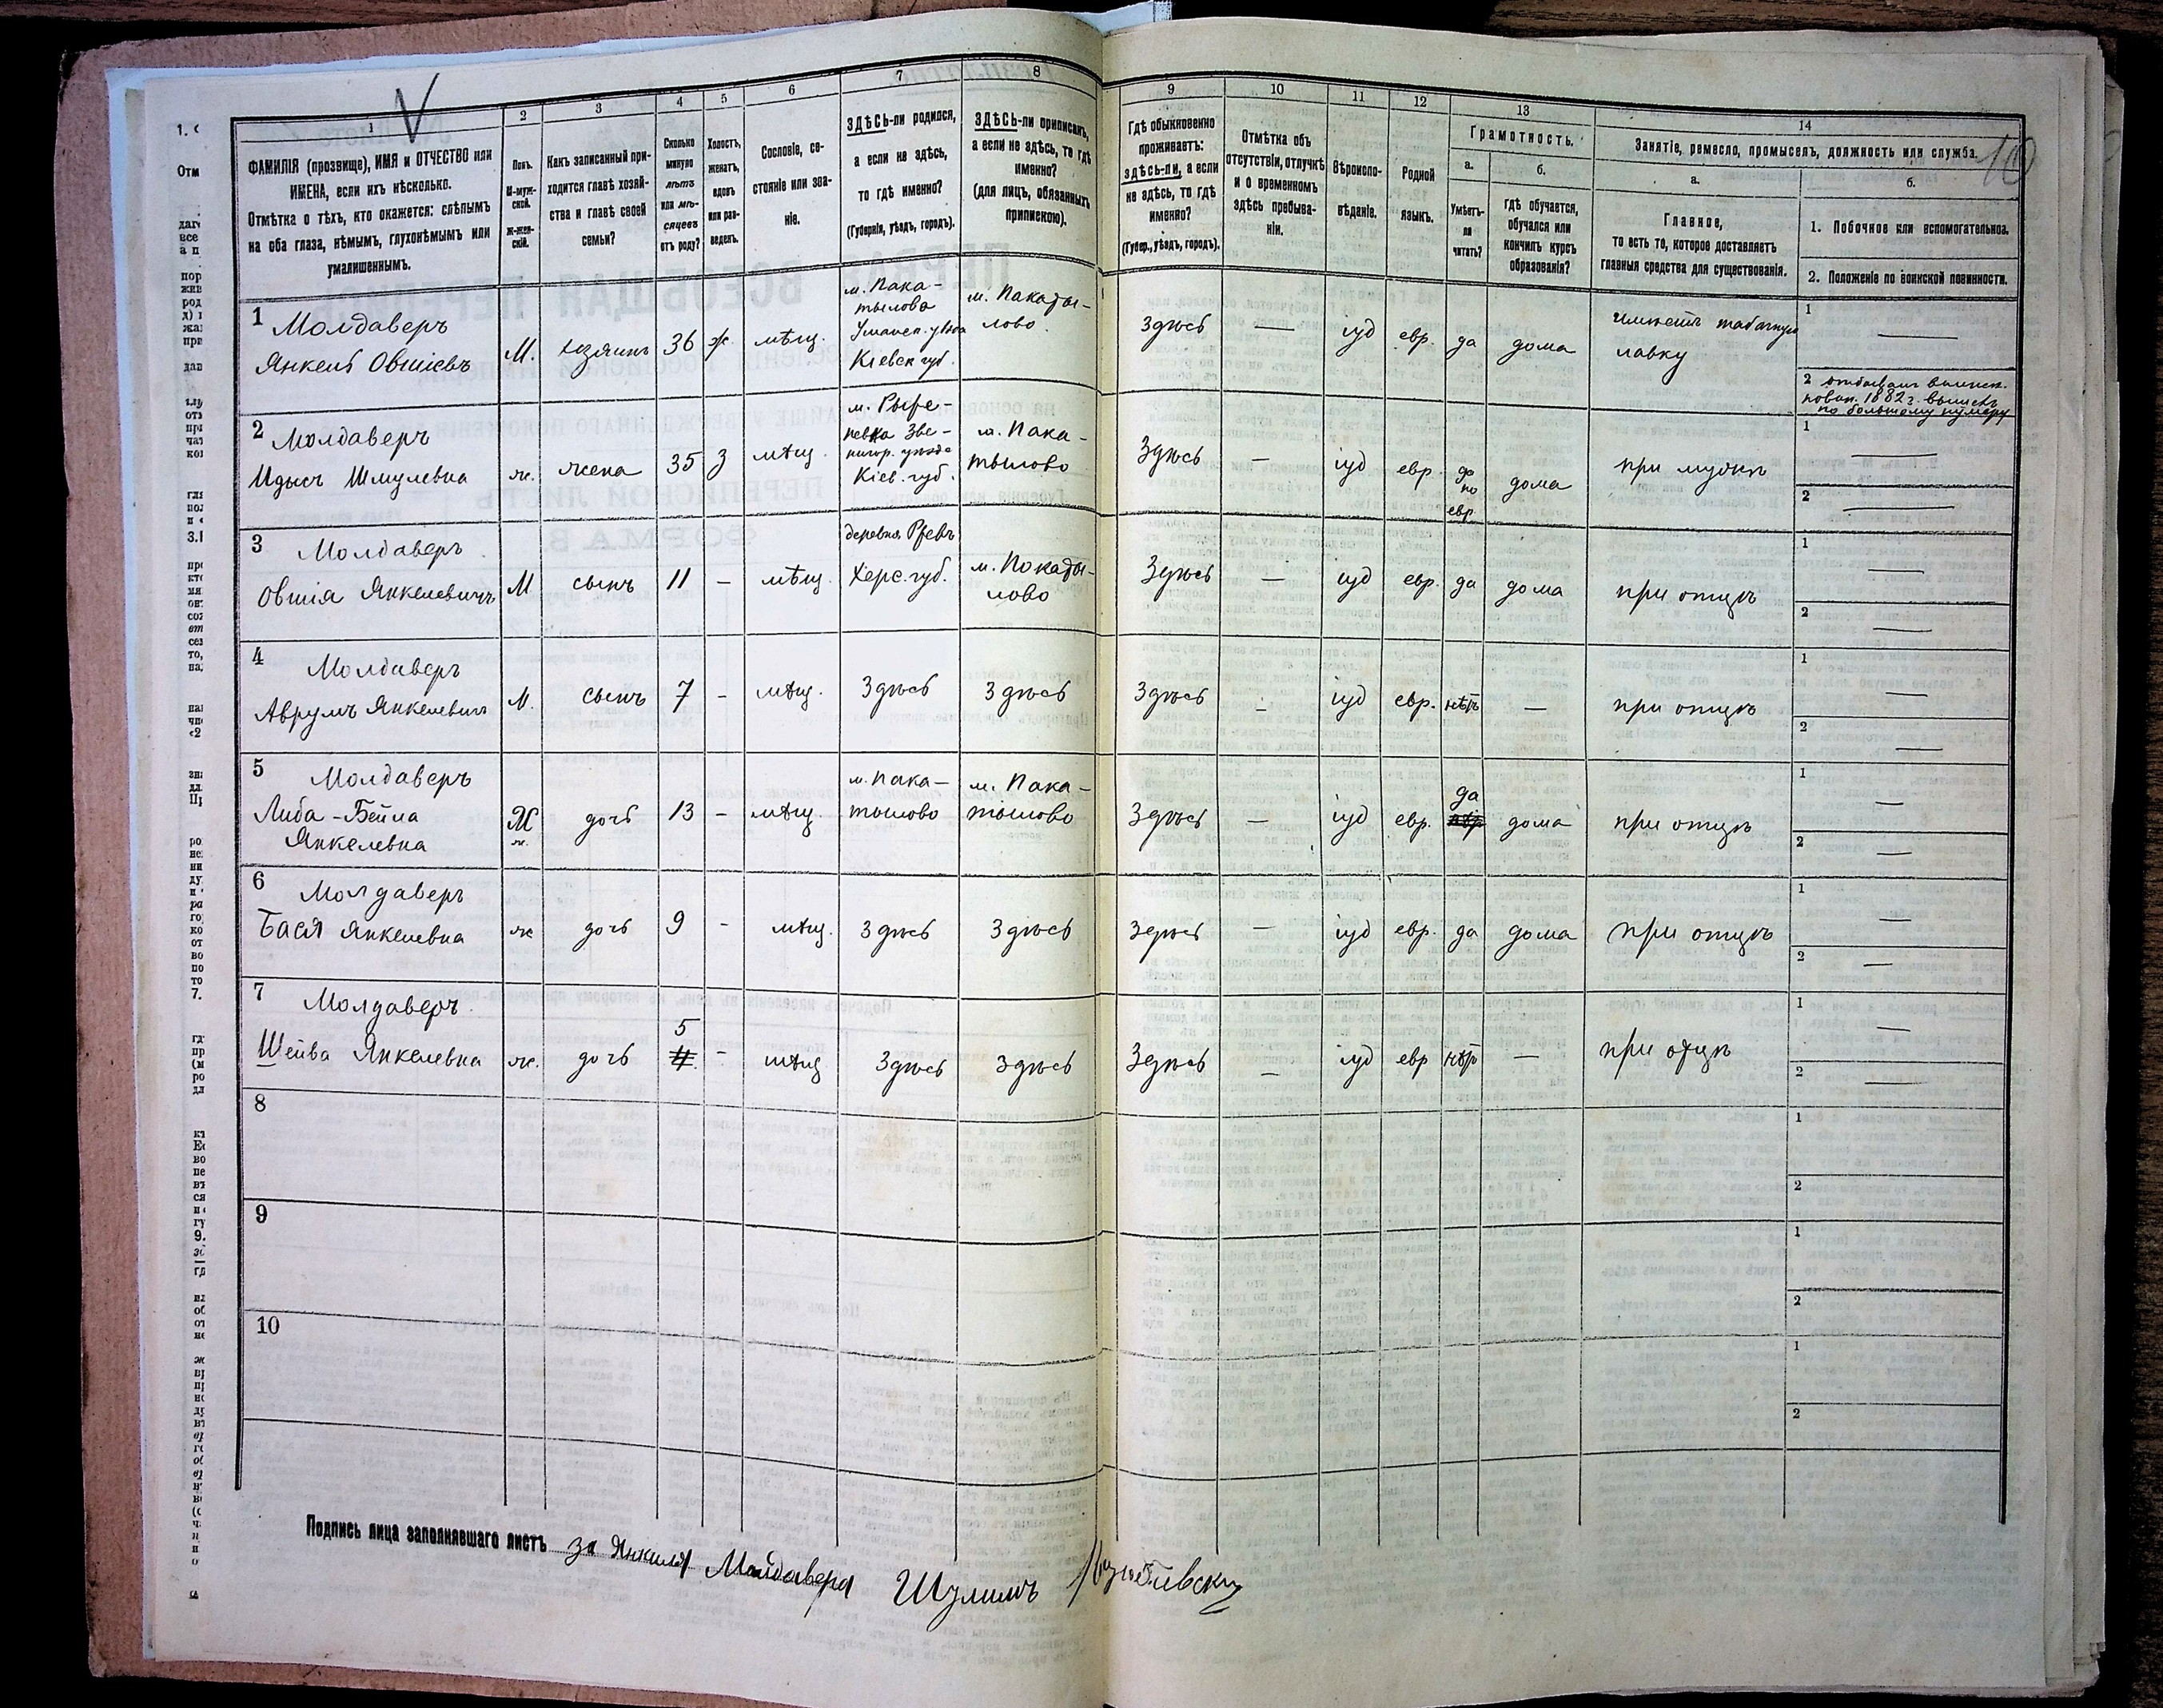 1
ФАМИЛІЯ (прозвище), ИМЯ и ОТЧЕСТВО или
ИМЕНА, если ихъ нѣсколько.
Отмѣтка о тѣхъ, кто окажется: слѣпымъ
на оба глаза, нѣмымъ, глухонѣмымъ или
умалишеннымъ.
2
Полъ.
М-муж-
ской.
Ж-жен-
скій.
3
Какъ записанный при-
ходится главѣ хозяй-
ства и главѣ своей
семьи?
4
Сколько
минуло
лѣтъ
или мѣ-
сяцевъ
отъ роду?
5
Холостъ,
женатъ,
вдовъ
или раз-
веденъ.
6
Сословіе, со-
стояніе или зва-
ніе.
7
ЗДѢСЬ-ли родился,
а если не здѣсь,
то гдѣ именно?
(Губернія, уѣздъ, городъ).
8
ЗДѢСЬ-ли приписанъ,
а если не здѣсь, то гдѣ
именно?
(для лицъ, обязанныхъ
припискою).
9
Гдѣ обыкновенно
проживаетъ:
здѣсь-ли, а если
не здѣсь, то гдѣ
именно?
(Губер., уѣздъ, городъ).
10
Отмѣтка объ
отсутствіи, отлучкѣ
и о временномъ
здѣсь пребыва-
ніи.
11
Вѣроиспо-
вѣданіе.
12
Родной
языкъ.
13
Грамотность.
а.
Умѣетъ-
ли
читать?
б.
гдѣ обучается,
обучался или
кончилъ курсъ
образованія?
14
Занятіе, ремесло, промыселъ, должность или служба.
10
а.
Главное,
то есть то, которое доставляетъ
главныя средства для существованія.
б.
1. Побочное или вспомогательное.
2. Положеніе по воинской повинности.
1 Молдаверъ
Янкель Овшіевъ
М.
хозяинъ
36
ж
мѣщ.
м. Пака-
тылова
Уманск. уѣзда
Кіевск губ.
м. Покаты-
лово.
Здѣсь
—
іуд
евр.
да
дома
имѣетъ табачную
лавку
1 —
2 отбывалъ воинск.
повин. 1882 г. вынелъ
по большому нумеру
2 Молдаверъ
Идысъ Шмулевна
ж.
жена
35
З
мѣщ.
Зве-
нигор. уѣзда
Кіев. губ.
м. Пака-
тылово
Здѣсь
—
іуд
евр.
да
по
евр
дома
при мужѣ
1 —
2 —
3 Молдаверъ
Овшія Янкелевичъ
М
сынъ
11
–
мѣщ.
деревня
Херс. губ.
м. Покаты-
лово
Здѣсь
—
іуд
евр.
да
дома
при отцѣ
1 —
2 —
4 Молдаверъ
Аврумъ Янкелевичъ
М.
сынъ
7
–
мѣщ.
Здѣсь
Здѣсь
Здѣсь
–
іуд
евр.
нѣтъ
—
при отцѣ
1 —
2 —
5 Молдаверъ
Либа-Бейла
Янкелевна
Ж
ж.
дочь
13
–
мѣщ.
м. Пака-
тылово
м. Пака-
тылово
Здѣсь
—
іуд
евр.
да
нѣтъ
дома
при отцѣ
1 —
2 —
6 Молдаверъ
Бася Янкелевна
ж
дочь
9
-
мѣщ.
Здѣсь
Здѣсь
Здѣсь
—
іуд
евр.
да
дома
при отцѣ
1 —
2 —
7 Молдаверъ
Шейва Янкелевна
ж.
дочь
5
4.
-
мѣщ
Здѣсь
Здѣсь
Здѣсь
—
іуд
евр
нѣтъ
—
при отцѣ
1 —
2 —
8
1
2
9
1
2
10
1
2
Подпись лица заполнявшаго листъ за Янкиля Молдавера Шулимъ